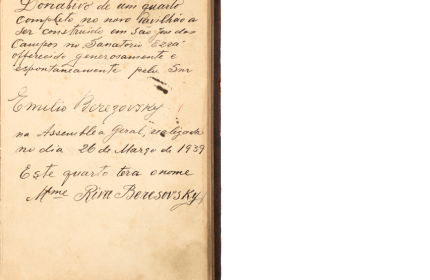 Donativo de um quarto
completo no novo Pavilhão a
ser construido em São José dos
Campos no Sanatorio Ezra
offerecido generosamente e
espontaneamente pelo Snr
Emilio Berezovsky
na Assemblea Geral, realizada
no dia 26 de Março de 1939
Este quarto tera o nome
Mme Riva Beresovsky